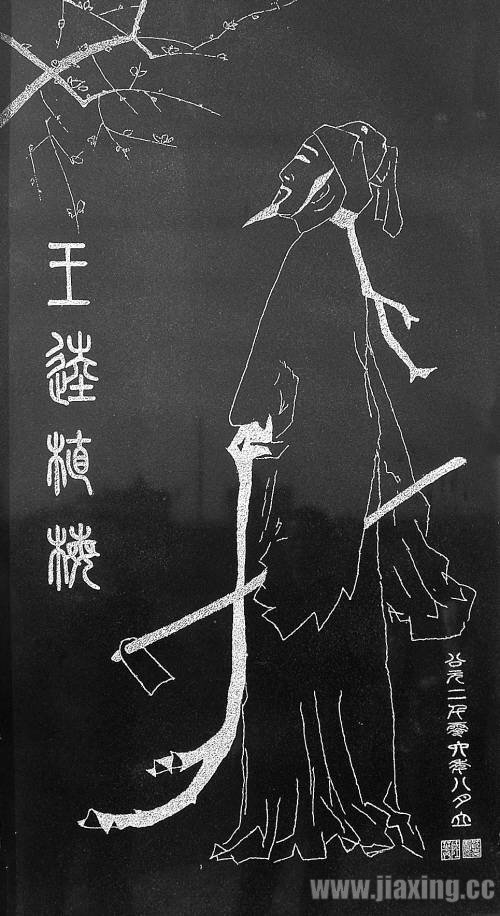 王逵植梅
公元二千零六年八月立
www.jiaxing.cc